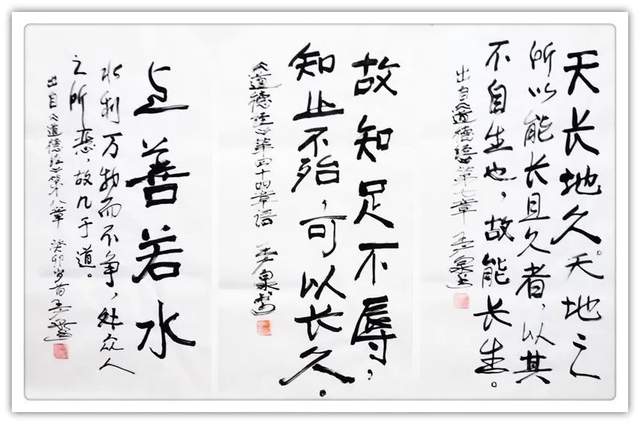 天长地久。天地之
所以能长且久者，以其
不自生也，故能长生。
出自《道德经》第七章
故知足不辱，
知止不殆，可以长久。
《道德经》第四十四章语
上善若水
水利万物而不争，处众人
之所恶，故几于道。
出自《道德经》第八章 癸卯